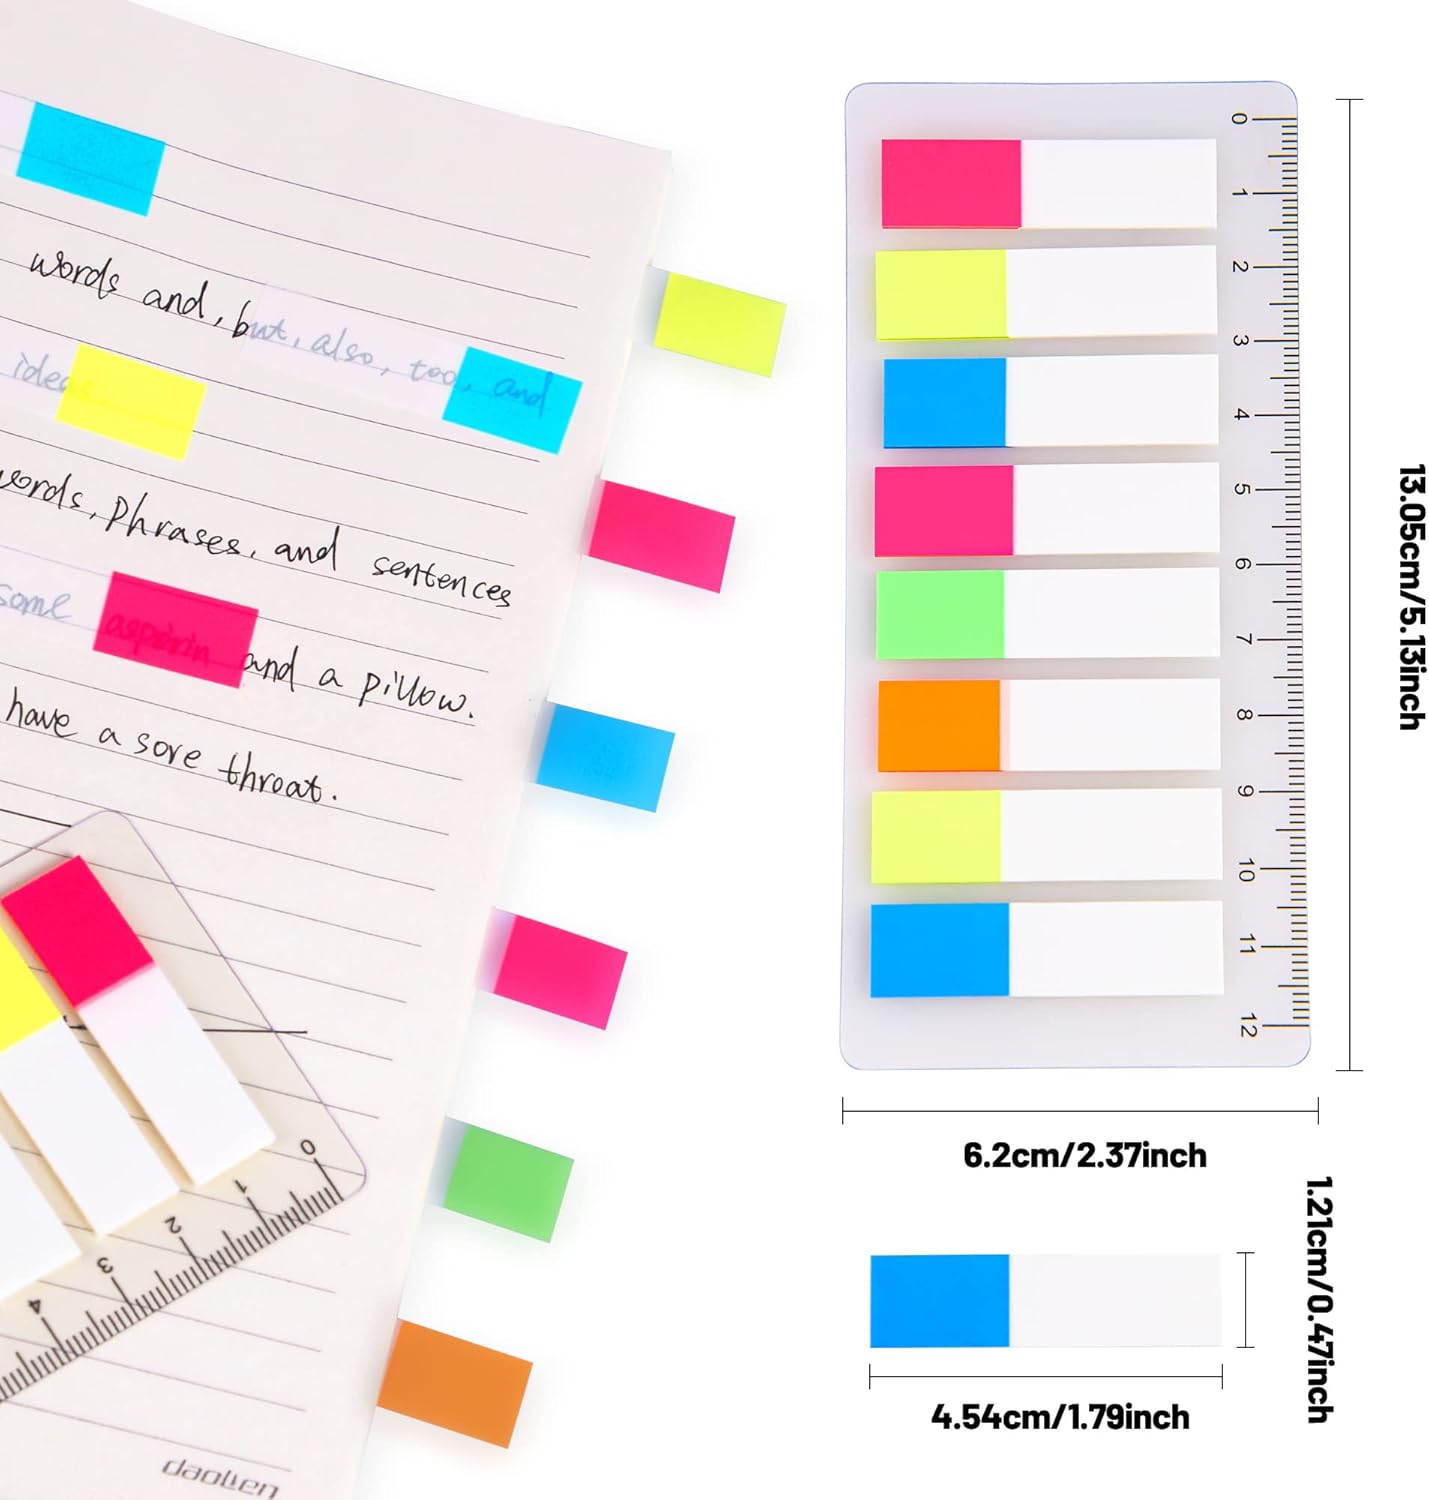 words and, but, also, too, and
ideas.
words, phrases, and sentences
some aspirin and a pillow.
have a sore throat.
0
1
2
3
4
daolien
0
1
2
3
4
5
6
7
8
9
10
11
12
13.05cm/5.13inch
6.2cm/2.37inch
1.21cm/0.47inch
4.54cm/1.79inch